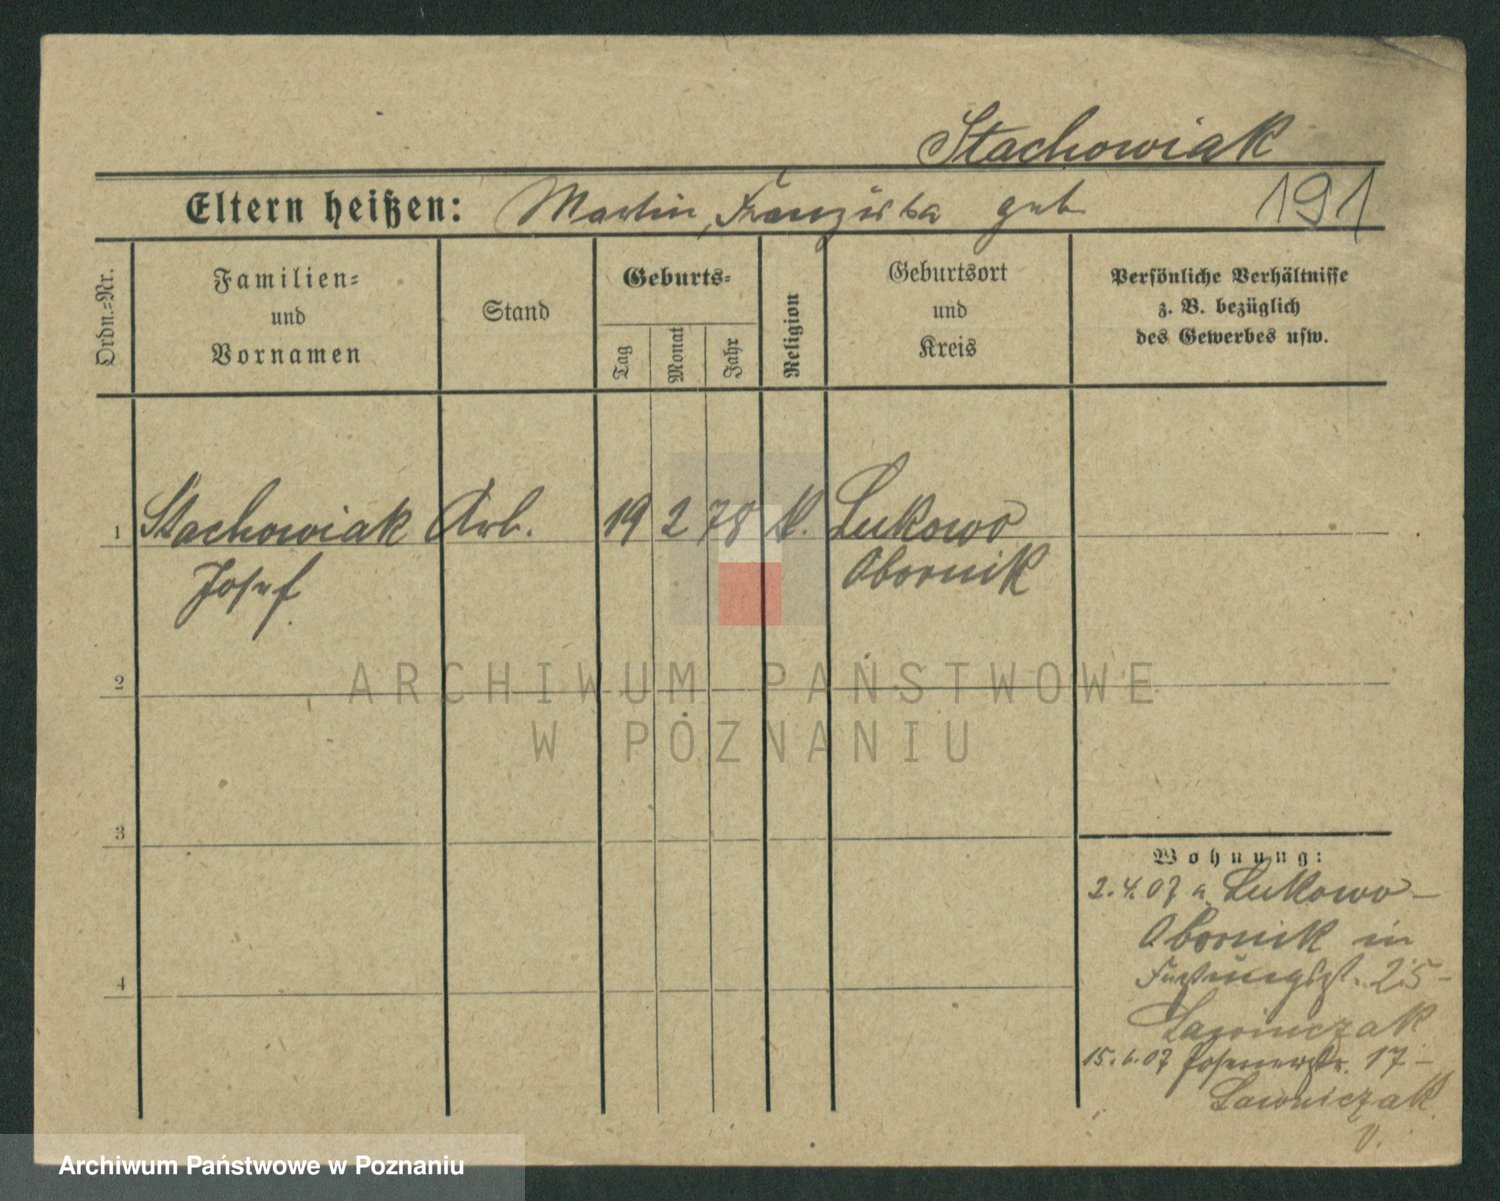 Stachowiak
Eltern heißen: Martin, Franziska geb
191
Ordn.=Nr.
Familien=
und
Vornamen
Stand
Geburts=
Tag
Monat
Jahr
Religion
Geburtsort
und
Kreis
Persönliche Verhältnisse
z. B. bezüglich
des Gewerbes usw.
1
Stachowiak Arb. 19 2 78 k. Lukowo
Josef. Obornik
2
3
4
ARCHIWUM PAŃSTWOWE
W POZNANIU
Wohnung:
2.4.07 a. Lukowo–
Obornik in
25–
Lawniczak
15.6.07 Posenerstr. 17–
Lawniczak
V.
Archiwum Państwowe w Poznaniu